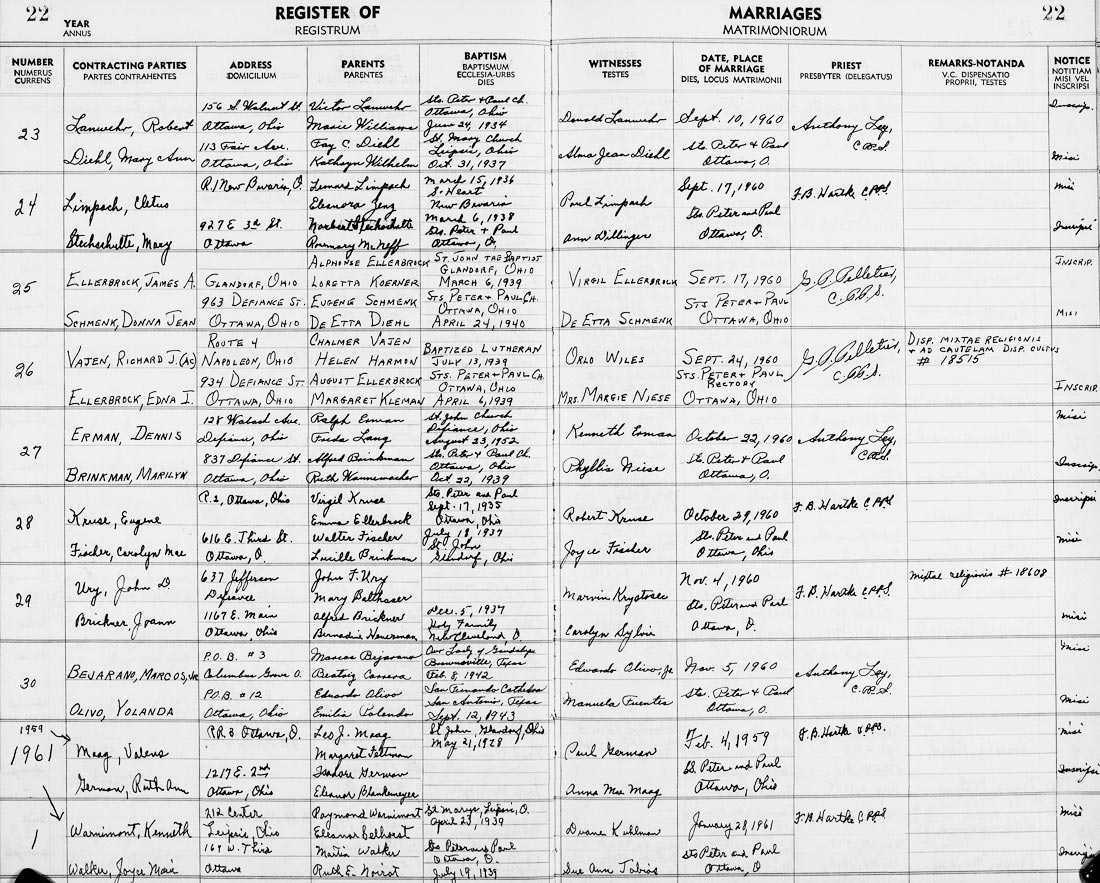 22
YEAR
ANNUS
REGISTER OF
REGISTRUM
MARRIAGES
MATRIMONIORUM
22
NUMBER
NUMERUS
CURRENS
CONTRACTING PARTIES
PARTES CONTRAHENTES
ADDRESS
DOMICILIUM
PARENTS
PARENTES
BAPTISM
BAPTISMUM
ECCLESIA-URBS
DIES
WITNESSES
TESTES
DATE, PLACE
OF MARRIAGE
DIES, LOCUS MATRIMONII
PRIEST
PRESBYTER (DELEGATUS)
REMARKS-NOTANDA
V.C. DISPENSATIO
PROPRII, TESTES
NOTICE
NOTITIAM
MISI VEL
INSCRIPSI
23
Lanwehr, Robert
Diehl, Mary Ann
156 S. Walnut St.
Ottawa, Ohio
113 Fair Ave.
Ottawa, Ohio
Victor Lanwehr
Marie Williams
Fay C. Diehl
Kathryn Wilhelm
Sts. Peter & Paul Ch.
Ottawa, Ohio
June 24, 1934
St. Mary Church
Leipsic, Ohio
Oct. 31, 1937
Donald Lanwehr
Alma Jean Diehl
Sept. 10, 1960
Sts. Peter & Paul
Ottawa, O.
Anthony Ley,
C.PP.S.
Inscrip.
Misi
24
Limpach, Cletus
Stechschulte, Mary
R.1 New Bavaria, O.
927 E. 3rd St.
Ottawa
Lenard Limpach
Eleanora Jeng
Norbert Stechschulte
Rosemary McNeff
March 15, 1936
S. Heart
New Bavaria
March 6, 1938
Sts. Peter & Paul
Ottawa, O.
Paul Limpach
Ann Dillinger
Sept. 17, 1960
Sts. Peter and Paul
Ottawa, O.
F.B. Hartke C.PP.S.
misi
Inscripsi
25
ELLERBROCK, JAMES A.
SCHMENK, DONNA JEAN
GLANDORF, OHIO
963 DEFIANCE ST.
OTTAWA, OHIO
ALPHONSE ELLERBROCK
LORETTA KOERNER
EUGENE SCHMENK
DE ETTA DIEHL
ST. JOHN THE BAPTIST
GLANDORF, OHIO
MARCH 6, 1939
STS. PETER & PAUL CH.
OTTAWA, OHIO
APRIL 24, 1940
VIRGIL ELLERBROCK
DE ETTA SCHMENK
SEPT. 17, 1960
STS PETER & PAUL
OTTAWA, OHIO
G. A. Pelletier,
C.PP.S.
INSCRIP.
MISI
26
VAJEN, RICHARD J. (AC)
ELLERBROCK, EDNA I.
ROUTE 4
NAPOLEON, OHIO
934 DEFIANCE ST.
OTTAWA, OHIO
CHALMER VAJEN
HELEN HARMON
AUGUST ELLERBROCK
MARGARET KLEMAN
BAPTIZED LUTHERAN
JULY 13, 1939
STS. PETER & PAUL CH.
OTTAWA, OHIO
APRIL 6, 1939
ORLO WILES
MRS. MARGIE NIESE
SEPT. 24, 1960
STS. PETER & PAUL
RECTORY
OTTAWA, OHIO
G. A. Pelletier,
C.PP.S.
DISP. MIXTAE RELIGIONIS
& AD CAUTELAM DISP. CULTUS
# 18515
INSCRIP.
27
ERMAN, DENNIS
BRINKMAN, MARILYN
128 Wabash Ave.
Defiance, Ohio
837 Defiance St.
Ottawa, Ohio
Ralph Erman
Freda Lang
Alfred Brinkman
Ruth Wannemacher
St. John Church
Defiance, Ohio
August 23, 1952
Sts. Peter & Paul Ch.
Ottawa, Ohio
Oct 22, 1939
Kenneth Erman
Phyllis Niese
October 22, 1960
Sts. Peter & Paul
Ottawa, O.
Anthony Ley,
C.PP.S.
Misi
Inscrip.
28
Kruse, Eugene
Fischer, Carolyn Mae
R. 2, Ottawa, Ohio
616 E. Third St.
Ottawa, O.
Virgil Kruse
Emma Ellerbrock
Walter Fischer
Lucille Brinkman
Sts. Peter and Paul
Sept. 17, 1935
Ottawa, Ohio
July 18, 1937
St. John
Glandorf, Ohio
Robert Kruse
Joyce Fischer
October 29, 1960
Sts. Peter and Paul
Ottawa, Ohio
F.B. Hartke C.PP.S.
Inscripsi
misi
29
Ury, John D.
Brickner, Joann
637 Jefferson
Defiance
1167 E. Main
Ottawa, Ohio
John F. Ury
Mary Balthaser
Alfred Brickner
Bernadine Heuerman
Dec. 5, 1937
Holy Family
New Cleveland, O.
Marvin Krystosec
Carolyn Sylvia
Nov. 4, 1960
Sts. Peter and Paul
Ottawa, O.
F.B. Hartke C.PP.S.
Mixtae religionis # 18608
misi
30
BEJARANO, MARCOS, JR.
OLIVO, YOLANDA
P.O.B. #3
Columbus Grove O.
P.O.B. #12
Ottawa, Ohio
Marcos Bejarano
Beatriz Carrera
Eduardo Olivo
Emilia Rolando
Our Lady of Guadalupe
Brownsville, Texas
Feb. 8, 1942
San Fernando Cathedral
San Antonio, Texas
Sept. 12, 1943
Edwardo Olivo, Jr.
Manuela Fuentes
Nov. 5, 1960
Sts. Peter & Paul
Ottawa, O.
Anthony Ley,
C.PP.S.
Misi
Misi
1959
1961
Maag, Valens
German, Ruth Ann
RR 3 Ottawa, O.
1217 E. 2nd
Ottawa, Ohio
Leo J. Maag
Margaret Feltman
Isadore German
Eleanor Blankemeyer
St John, Glandorf, Ohio
May 21, 1928
Paul German
Anna Mae Maag
Feb. 4, 1959
SS. Peter and Paul
Ottawa, Ohio
F.B. Hartke C.PP.S.
misi
Inscripsi
1
Warnimont, Kenneth
Walker, Joyce Marie
212 Center
Leipsic, Ohio
169 W. Third
Ottawa
Raymond Warnimont
Eleanor Selhorst
Martin Walker
Ruth E. Noirot
St Marys, Leipsic, O.
April 23, 1939
Sts Peter and Paul
Ottawa, O.
July 19, 1939
Duane Kuhlman
Sue Ann Tobias
January 28, 1961
Sts Peter and Paul
Ottawa, O.
F.B. Hartke C.PP.S.
Misi
Inscripsi